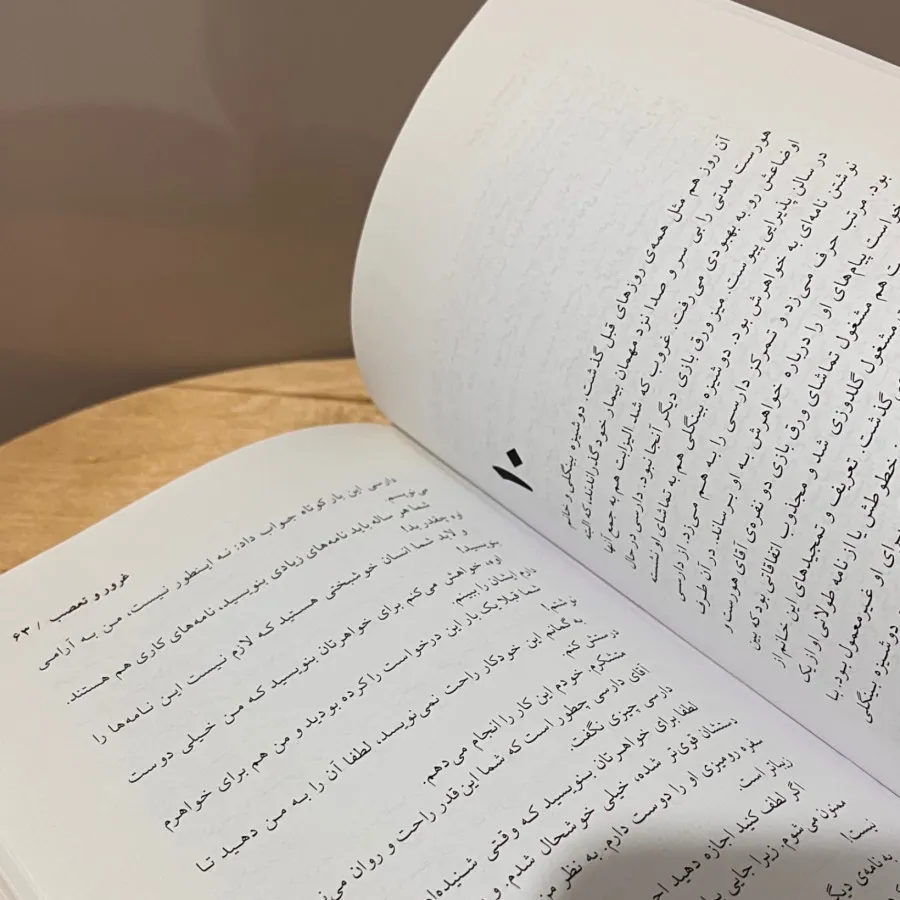 ۱۰
آن روز هم مثل همه‌ی روزهای قبل گذشت. دوشیزه بینگلی و خانم
هورست مدتی را بی سر و صدا نزد مهمان بیمار خود گذراندند که البته
اوضاعش رو به بهبودی می‌رفت. غروب که شد الیزابت هم به جمع آنها
در سالن پذیرایی پیوست. میز ورق بازی دیگر آنجا نبود: دارسی در حال
نوشتن نامه‌ای به خواهرش بود. دوشیزه بینگلی هم به تماشای او نشسته
بود. مرتب حرف می‌زد و تمرکز دارسی را به هم می‌زد. از دارسی
خواست پیام‌های او را درباره خواهرش به او برساند. در آن طرف
هم مشغول تماشای ورق بازی دو نفره‌ی آقای هورست و
مشغول گلدوزی شد و مجذوب اتفاقاتی بود که بین
گذشت. تعریف و تمجیدهای این خانم از
خطوطش یا از نامه طولانی او از یک
برای او غیرمعمول بود. با
دوشیزه بینگلی
غرور و تعصب / ۶۳
دارسی این بار کوتاه جواب داد: نه اینطور نیست، من به آرامی
می‌نویسم.
شما هر ساله باید نامه‌های زیادی بنویسید، نامه‌های کاری هم هستند.
اوه چقدر بد!
و لابد شما انسان خوشبختی هستید که لازم نیست این نامه‌ها را
بنویسید!
اوه، خواهش می‌کنم برای خواهرتان بنویسید که من خیلی دوست
دارم ایشان را ببینم.
شما قبلا یک بار این درخواست را کرده بودید و من هم برای خواهرم
نوشتم!
به گمانم این خودکار راحت نمی‌نویسد، لطفا آن را به من دهید تا
درستش کنم.
متشکرم. خودم این کار را انجام می‌دهم.
آقای دارسی چطور است که شما این قدر راحت و روان
دارسی چیزی نگفت.
لطفا برای خواهرتان بنویسید که وقتی شنیده‌ام
دستتان قوی‌تر شده، خیلی خوشحال شدم. و
سفره رومیزی او را دوست دارم. به نظر من
زیباتر است.
اگر لطف کنید اجازه دهید
ممنون می شوم. زیرا جایی
نیست!
به نامه‌ی دیگر